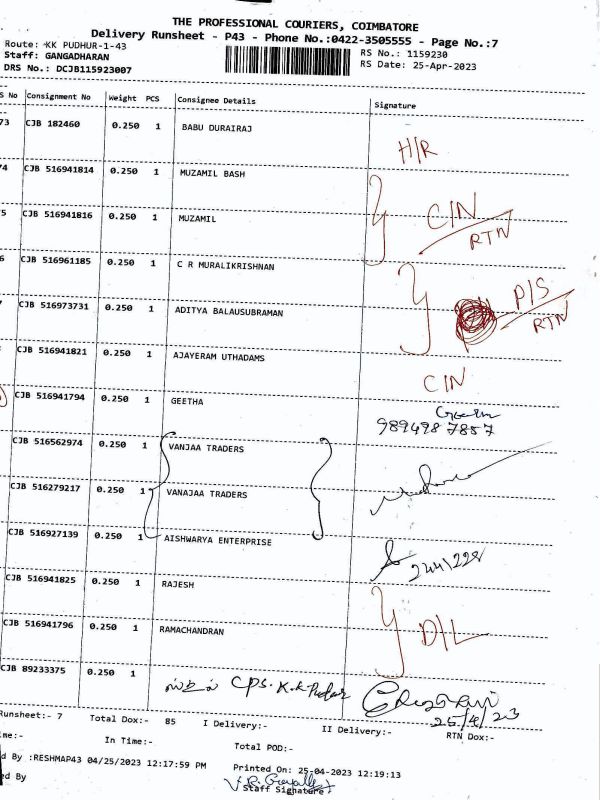 THE PROFESSIONAL COURIERS, COIMBATORE
Delivery Runsheet - P43 - Phone No.:0422-3505555 - Page No.:7
Route: KK PUDHUR-1-43 RS No.: 1159230
Staff: GANGADHARAN RS Date: 25-Apr-2023
DRS No.: DCJB115923007
S No Consignment No Weight PCS Consignee Details Signature
73 CJB 182460 0.250 1 BABU DURAIRAJ H/R
74 CJB 516941814 0.250 1 MUZAMIL BASH
5 CJB 516941816 0.250 1 MUZAMIL C/N
RTN
6 CJB 516961185 0.250 1 C R MURALIKRISHNAN
CJB 516973731 0.250 1 ADITYA BALAUSUBRAMAN P/S
RTN
CJB 516941821 0.250 1 AJAYERAM UTHADAMS C/N
CJB 516941794 0.250 1 GEETHA Geetha
9894987857
CJB 516562974 0.250 1 VANJAA TRADERS
CJB 516279217 0.250 1 VANAJAA TRADERS
CJB 516927139 0.250 1 AISHWARYA ENTERPRISE 2441228
CJB 516941825 0.250 1 RAJESH
CJB 516941796 0.250 1 RAMACHANDRAN D/L
CJB 89233375 0.250 1 CPS. K.K
25/4/23
Runsheet:- 7 Total Dox:- 85 I Delivery:- II Delivery:- RTN Dox:-
me:- In Time:- Total POD:-
d By :RESHMAP43 04/25/2023 12:17:59 PM Printed On: 25-04-2023 12:19:13
ed By Staff Signature